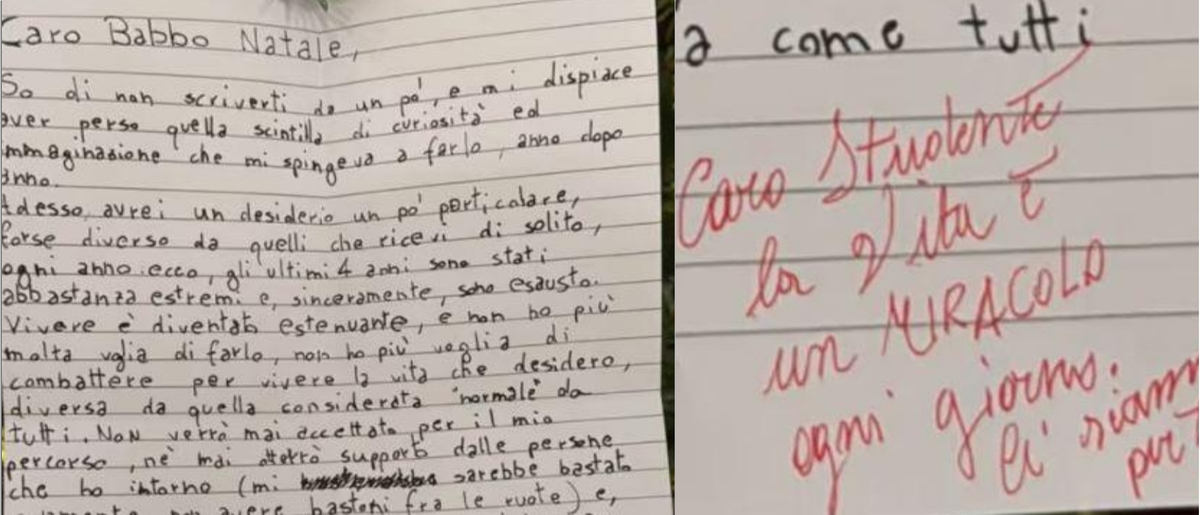 Caro Babbo Natale,
So di non scriverti da un pó, e mi dispiace
aver perso quella scintilla di curiosità ed
immaginazione che mi spingeva a farlo, anno dopo
anno.
Adesso, avrei un desiderio un pó particolare,
forse diverso da quelli che ricevi di solito,
ogni anno: ecco, gli ultimi 4 anni sono stati
abbastanza estremi e, sinceramente, sono esausto.
Vivere è diventato estenuante, e non ho più
molta voglia di farlo, non ho più voglia di
combattere per vivere la vita che desidero,
diversa da quella considerata "normale" da
tutti. Non verrò mai accettato per il mio
percorso, nè mai otterrò supporto dalle persone
che ho intorno (mi sarebbe bastato
avere bastoni fra le ruote) e,
a come tutti
Caro Studente
la Vita è
un MIRACOLO
ogni giorno.
Ci siam
per